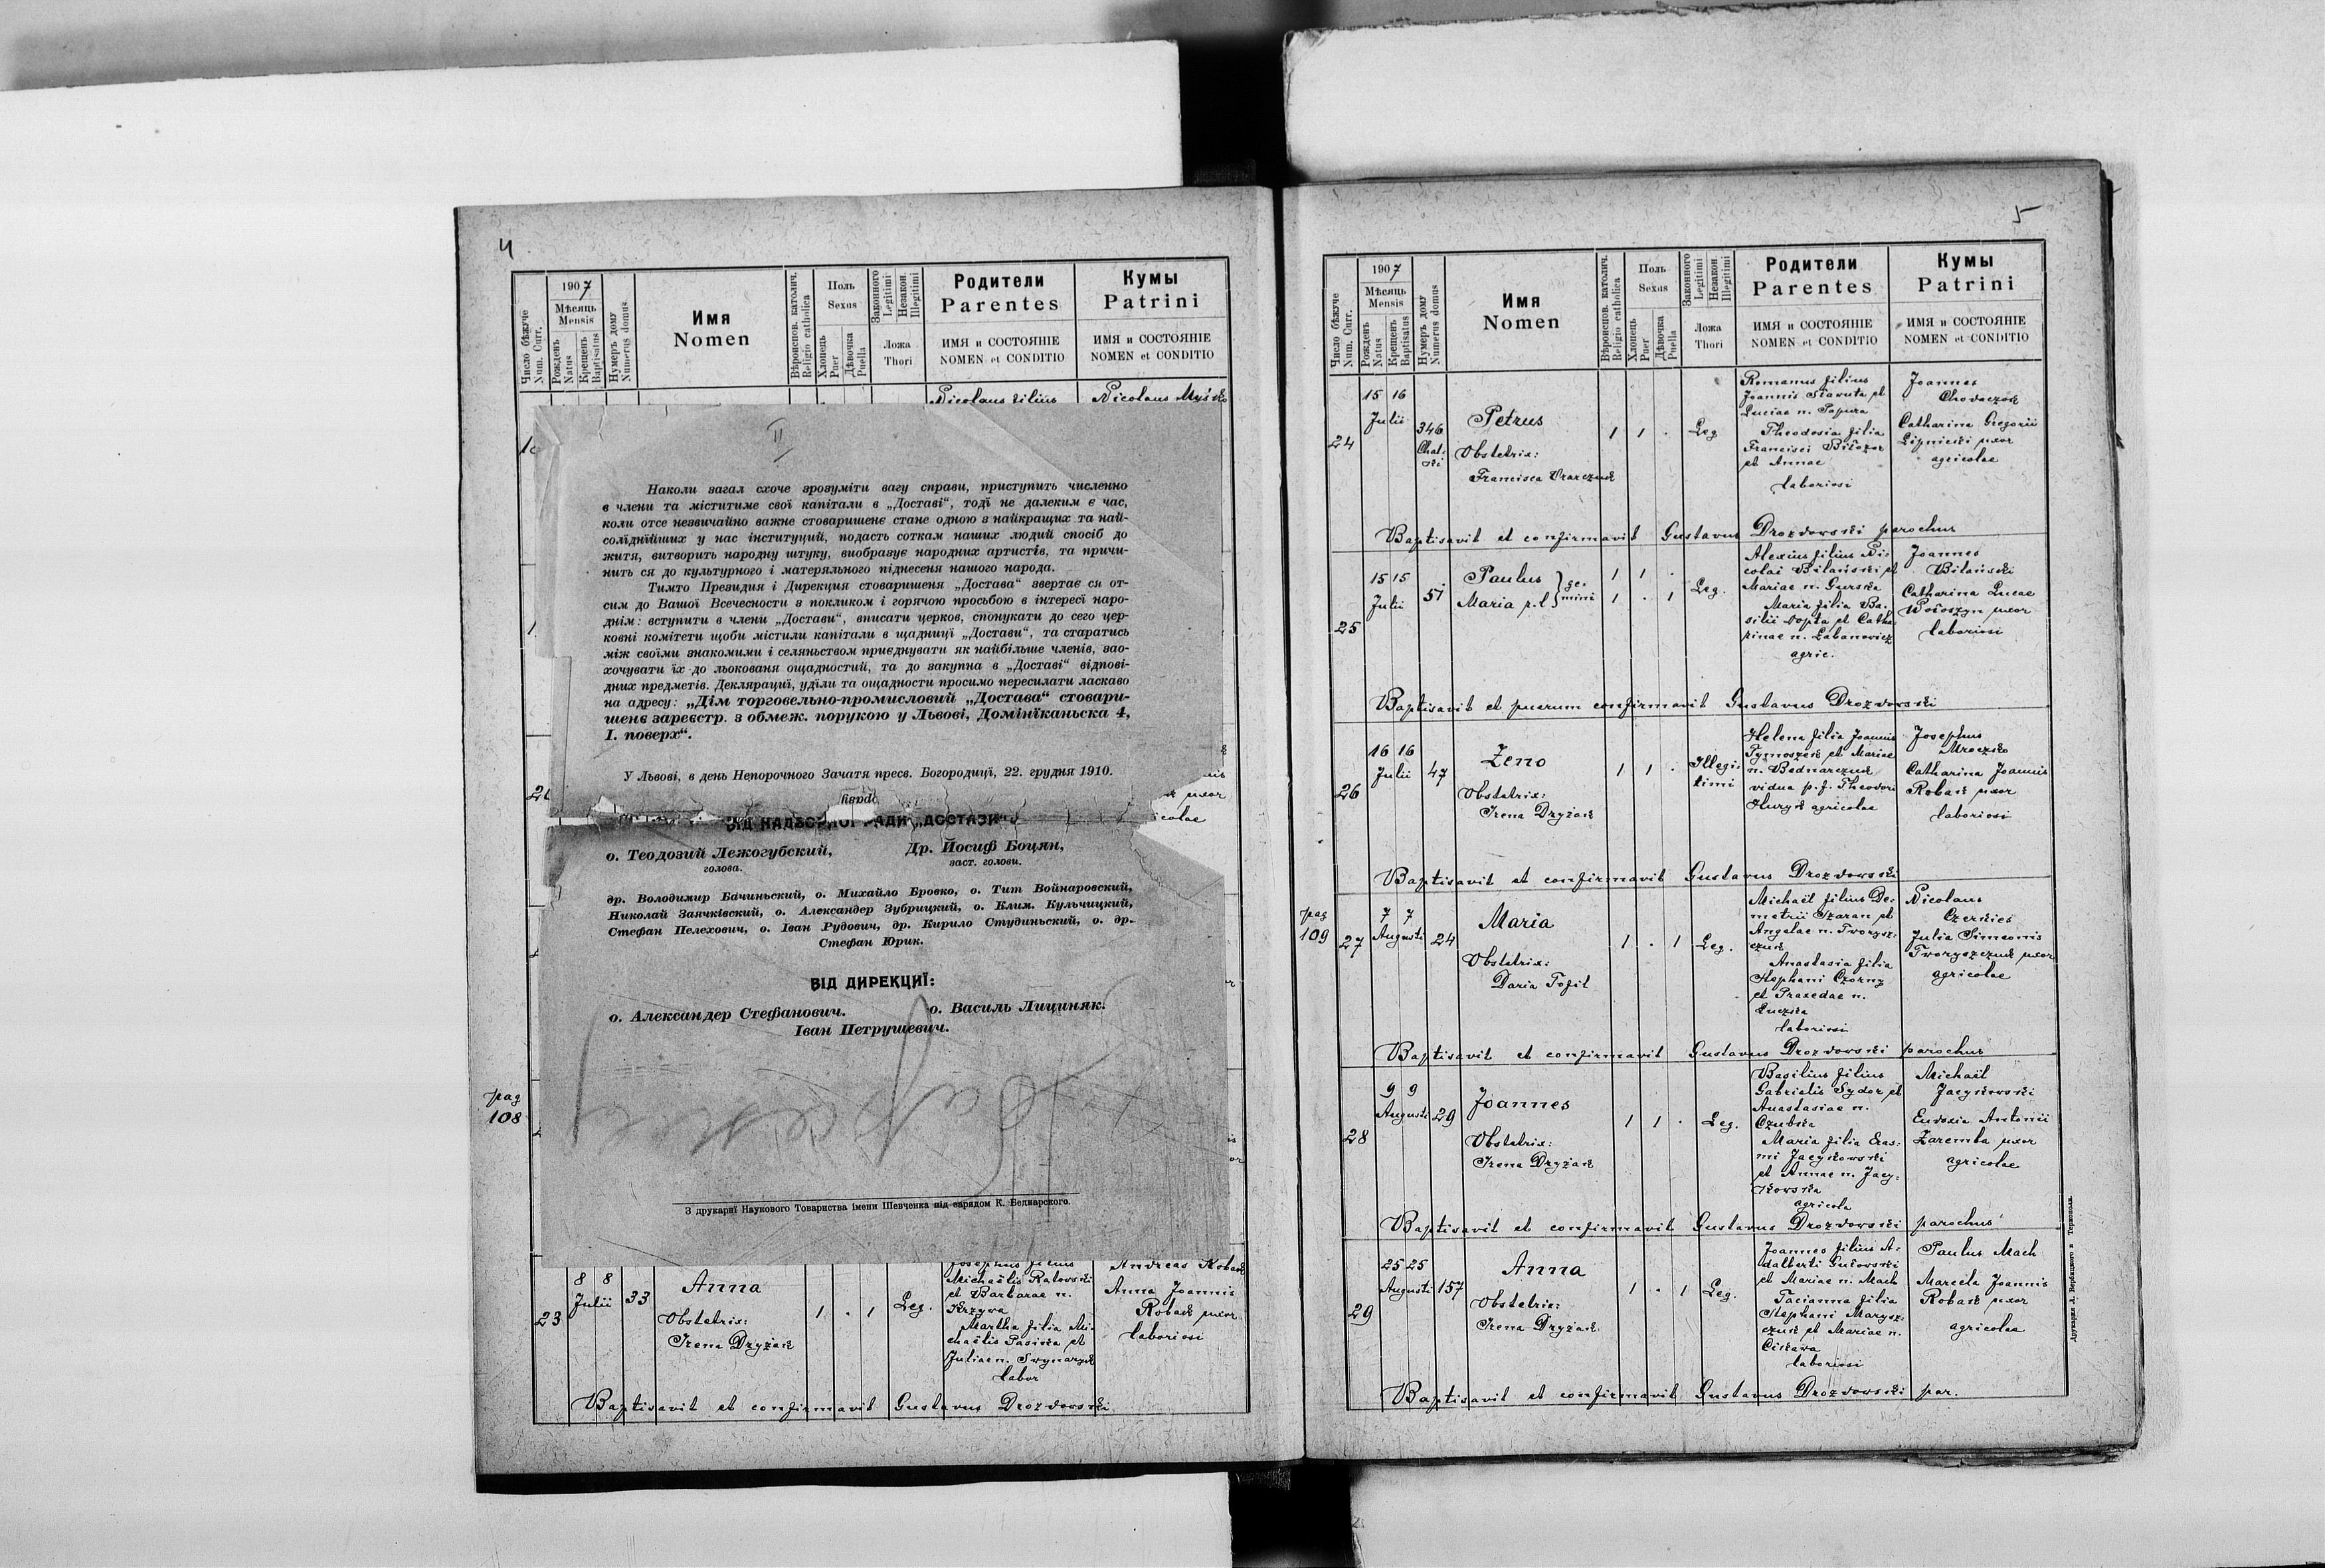 4
Число бѣжуче
Num. Curr.
1907
Мѣсяць
Mensis
Рожденъ
Natus
Крещенъ
Baptisatus
Нумеръ дому
Numerus domus
Имя
Nomen
Вѣроиспов. католич.
Religio catholica
Полъ
Sexus
Хлопець
Puer
Дѣвочка
Puella
Законного
Legitimi
Незакон.
Illegitimi
Ложа
Thori
Родители
Parentes
ИМЯ и СОСТОЯНІЕ
NOMEN et CONDITIO
Кумы
Patrini
ИМЯ и СОСТОЯНІЕ
NOMEN et CONDITIO
Nicolaus filius
Nicolaus
II
Наколи загал схоче зрозуміти вагу справи, приступить численно
в члени та міститиме свої капітали в „Доставі“, тодї не далеким є час,
коли отсе незвичайно важне стоваришенє стане одною з найкращих та най-
солїднїйших у нас інституций, подасть соткам наших людий спосіб до
житя, витворить народну штуку, виобразує народних артистів, та причи-
нить ся до культурного і матеряльного піднесеня нашого народа.
Тимто Президия і Дирекция стоваришеня „Достава“ звертає ся от-
сим до Вашої Всечесности з покликом і горячою просьбою в інтересї наро-
днім: вступити в члени „Достави“, вписати церков, спонукати до сего цер-
ковні комітети щоби містили капітали в щадници „Достави“, та старатись
між своїми знакомими і селяньством приєднувати як найбільше членів, зао-
хочувати їх до льокованя ощадностий, та до закупна в „Доставі“ відпові-
дних предметів. Деклярациї, уділи та ощадности просимо пересилати ласкаво
на адресу: „Дім торговельно-промисловий „Достава“ стовари-
шенє зареєстр. з обмеж. порукою у Львові, Домінїканьска 4,
I. поверх“.
У Львові, в день Непорочного Зачатя пресв. Богородицї, 22. грудня 1910.
ВІД НАДЗОРНОЇ РАДИ „ДОСТАВИ“
о. Теодозий Лежогубский,
голова.
Др. Йосиф Боцян,
заст. голови.
др. Володимир Бачиньский, о. Михайло Бровко, о. Тит Войнаровский,
Николай Заячківский, о. Александер Зубрицкий, о. Клим. Кульчицкий,
Стефан Пелехович, о. Іван Рудович, др. Кирило Студиньский, о. др.
Стефан Юрик.
ВІД ДИРЕКЦИЇ:
о. Александер Стефанович.
о. Василь Лициняк.
Іван Петрушевич.
З друкарнї Наукового Товариства імени Шевченка під зарядом К. Беднарского.
uxor
pag
108
23
8 8
Julii
33
Anna
Obstetrix:
Irena Dryżak
1 . 1
Leg.
Josephus filius
Michaëlis Ratowski
et Barbarae n.
Krzywa
Martha filia Mi-
chaëlis Pasicka et
Juliae n.
labor
Andreas Robak
Anna Joannis
Robak uxor
laboriosi
Baptisavit et confirmavit Gustavus Drozdowski
5
Число бѣжуче
Num. Curr.
1907
Мѣсяць
Mensis
Рожденъ
Natus
Крещенъ
Baptisatus
Нумеръ дому
Numerus domus
Имя
Nomen
Вѣроиспов. католич.
Religio catholica
Полъ
Sexus
Хлопець
Puer
Дѣвочка
Puella
Законного
Legitimi
Незакон.
Illegitimi
Ложа
Thori
Родители
Parentes
ИМЯ и СОСТОЯНІЕ
NOMEN et CONDITIO
Кумы
Patrini
ИМЯ и СОСТОЯНІЕ
NOMEN et CONDITIO
24
15 16
Julii
346
Chat-
ki
Petrus
Obstetrix:
Francisca
1 1 .
Leg
Romanus filius
Joannis Stawuta et
Luciae n. Papura
Theodosia filia
Francisci Biłozor
et Annae
laboriosi
Joannes
Chodaczok
Catharina Gregorii
Lipnicki uxor
agricolae
Baptisavit et confirmavit Gustavus Drozdowski parochus
25
15 15
Julii
51
Paulus
Maria p. t.
ge-
mini
1 1 .
1 . 1
Leg.
Alexius filius Ni-
colai Bilański et
Mariae n. Gurska
Maria filia Ba-
silii Dopta et Catha-
rinae n. Labanowicz
agric.
Joannes
Bilański
Catharina Lucae
Wołoszyn uxor
laboriosi
Baptisavit et puerum confirmavit Gustavus Drozdowski
26
16 16
Julii
47
Zeno
Obstetrix:
Irena Dryżak
1 1 .
Illegi-
timi
Helena filia Joannis
Tymoszek et Mariae
n. Bednarczuk
vidua p. f. Theodori
Huryk agricolae
Josephus
Mroczko
Catharina Joannis
Robak uxor
laboriosi
Baptisavit et confirmavit Gustavus Drozdowski
pag
109
27
7 7
Augusti
24
Maria
Obstetrix:
Daria Tofil
1 . 1
Leg.
Michaël filius De-
metrii Szaran et
Angelae n. Tworysz-
czuk
Anastasia filia
Stephani Czorny
et Praxedae n.
Łuczka
laboriosi
Nicolaus
Czerkies
Julia Simeonis
Tworyszczuk uxor
agricolae
Baptisavit et confirmavit Gustavus Drozdowski parochus
28
9 9
Augusti
29
Joannes
Obstetrix:
Irena Dryżak
1 1 .
Leg.
Basilius filius
Gabrielis Sydor et
Anastasiae n.
Czubka
Maria filia Eras-
mi Jacykowski
et Annae n. Jacy-
kowska
agricola
Michaël
Jacykowski
Eudoxia Antonii
Zaremba uxor
agricolae
Baptisavit et confirmavit Gustavus Drozdowski parochus
29
25 25
Augusti
157
Anna
Obstetrix:
Irena Dryżak
1 . 1
Leg.
Joannes filius A-
dalberti Gutowski
et Mariae n. Mach
Tacianna filia
Stephani Marysz-
czuk et Mariae n.
Cikawa
laboriosi
Paulus Mach
Marcela Joannis
Robak uxor
agricolae
Baptisavit et confirmavit Gustavus Drozdowski par.
Друкарня Л. Вербицкого в Тернополи.